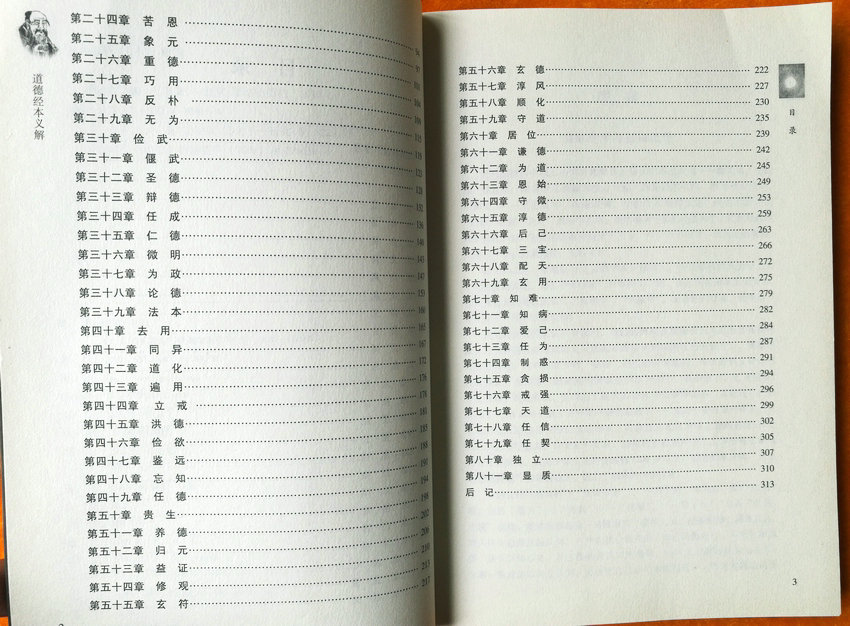 道德经本义解
第二十四章 苦恩
第二十五章 象元 97
第二十六章 重德 101
第二十七章 巧用 104
第二十八章 反朴 109
第二十九章 无为 115
第三十章 俭武
第三十一章 偃武
第三十二章 圣德
第三十三章 辩德 132
第三十四章 任成 136
第三十五章 仁德 140
第三十六章 微明 143
第三十七章 为政 147
第三十八章 论德 153
第三十九章 法本 160
第四十章 去用 165
第四十一章 同异 167
第四十二章 道化 172
第四十三章 遍用 176
第四十四章 立戒 178
第四十五章 洪德 181
第四十六章 俭欲 185
第四十七章 鉴远 188
第四十八章 忘知 194
第四十九章 任德 198
第五十章 贵生 202
第五十一章 养德 206
第五十二章 归元 210
第五十三章 益证 213
第五十四章 修观 217
第五十五章 玄符
目录
第五十六章 玄德 222
第五十七章 淳风 227
第五十八章 顺化 230
第五十九章 守道 235
第六十章 居位 239
第六十一章 谦德 242
第六十二章 为道 245
第六十三章 恩始 249
第六十四章 守微 253
第六十五章 淳德 259
第六十六章 后己 263
第六十七章 三宝 266
第六十八章 配天 272
第六十九章 玄用 275
第七十章 知难 279
第七十一章 知病 282
第七十二章 爱己 284
第七十三章 任为 287
第七十四章 制惑 291
第七十五章 贪损 294
第七十六章 戒强 296
第七十七章 天道 299
第七十八章 任信 302
第七十九章 任契 305
第八十章 独立 307
第八十一章 显质 310
后记 313
3